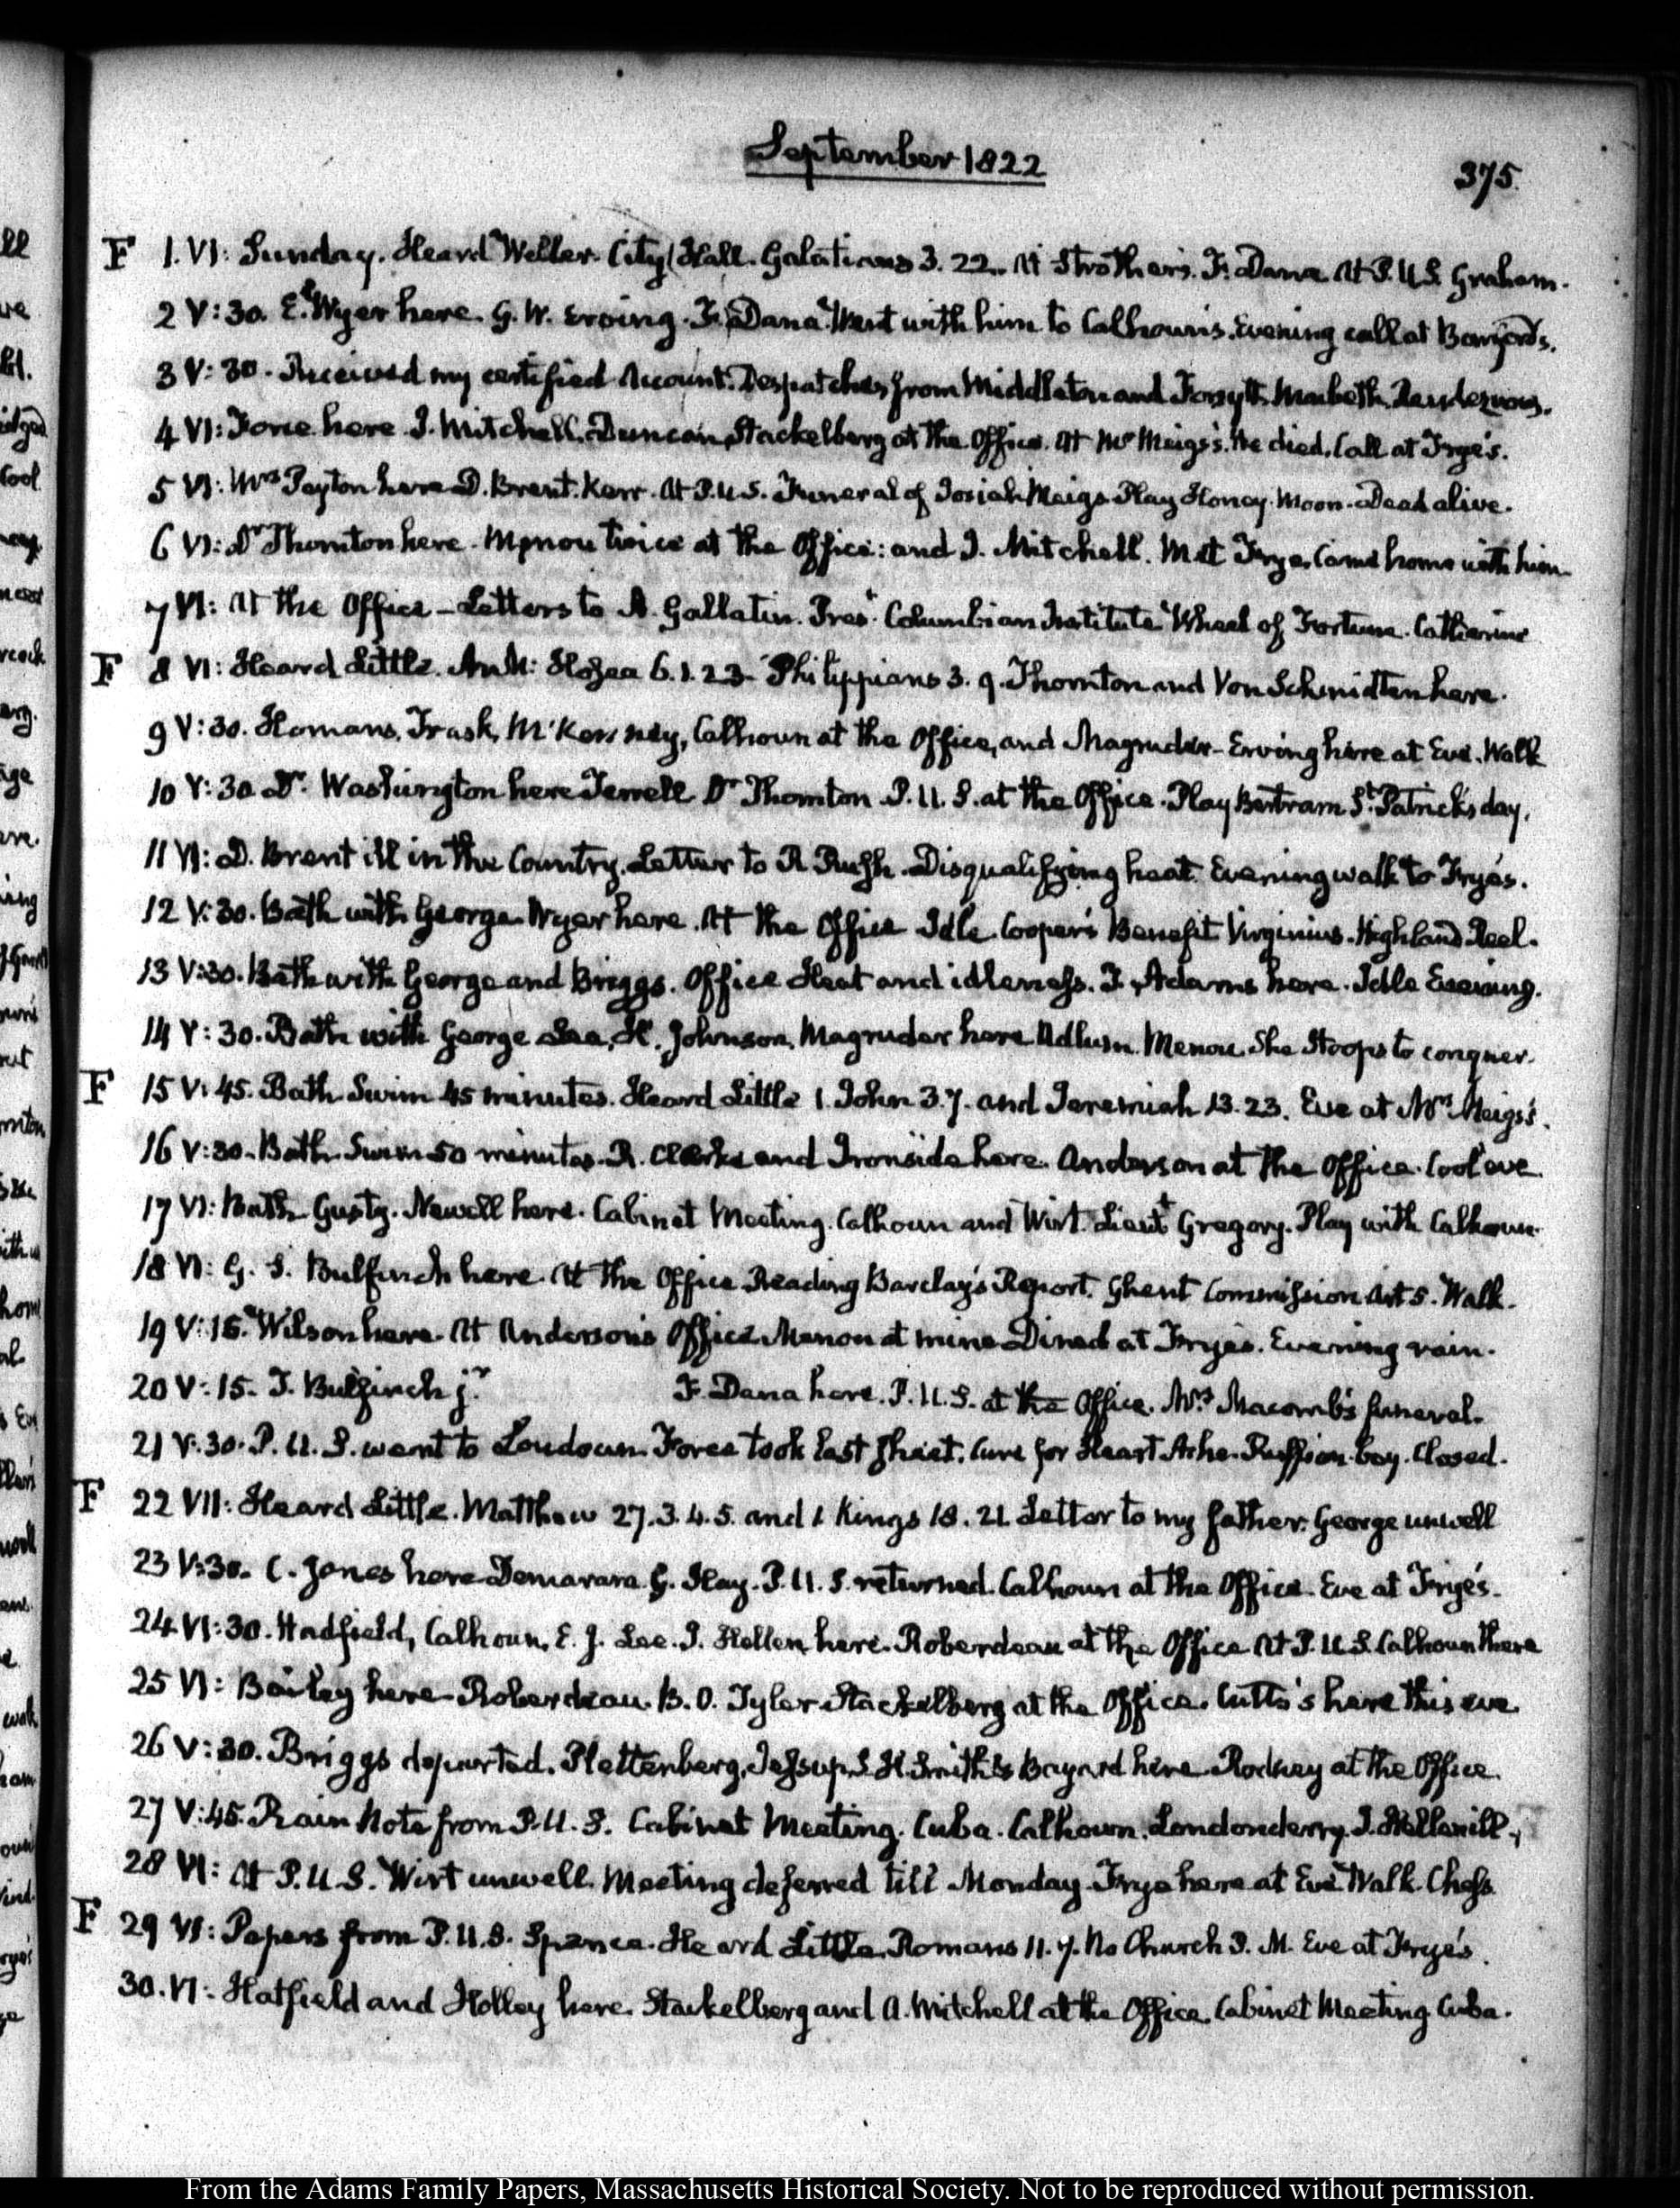 September 1822
375.
F 1. VI: Sunday. Heard Weller. City Hall. Galatians 3. 22. At Strother's. F. Dana. At P.U.S. Graham.
2 V:30. E. Wyer here. G. W. Erving. F. Dana. Went with him to Calhoun's. Evening call at Bomford's.
3 V:30. Received my certified Account. Despatches from Middleton and Forsyth. Macbeth. Rendezvous.
4 VI: Force here. J. Mitchell. Duncan, Stackelberg at the Office. At Mr Meigs's. He died. Call at Frye's.
5 VI: Mrs Peyton here. D. Brent. Kerr. At P.U.S. Funeral of Josiah Meigs. Play Honey-Moon. Dead alive.
6 VI: Dr Thornton here. Menou twice at the Office: and J. Mitchell. Met Frye. Came home with him.
7 VI: At the Office - Letters to A. Gallatin. Prest Columbian Institute. Wheel of Fortune. Catharine
F 8 VI: Heard Little. Hosea 6. 1. 2. 3. Philippians 3. 9. Thornton and Von Schmidten here.
9 V:30. Homans, Trask, McKenney, Calhoun at the Office, and Magruder - Erving here at Eve. Walk
10 V:30. Dr. Washington here. Jewell. Dr Thornton. P.U.S. at the Office. Play Bertram. St. Patrick's day.
11 VI: D. Brent ill in the Country. Letter to R. Rush. Disqualifying heat. Evening walk to Frye's.
12 V:30. Bath with George. Wyer here. At the Office Idle. Cooper's Benefit. Virginius. Highland Reel.
13 V:30. Bath with George and Briggs. Office. Heat and idleness. J. Adams here. Idle Evening.
14 V:30. Bath with George. Lee, Johnson, Magruder here. Adlum. Menou. She Stoops to conquer.
F 15 V:45. Bath. Swim 45 minutes. Heard Little 1. John 3. 7. and Jeremiah 13. 23. Eve at Mrs Meigs's.
16 V:30. Bath. Swim 50 minutes. R. Clarke and Ironside here. Anderson at the Office. Cool eve.
17 VI: Bath. Gusty. Newell here. Cabinet Meeting. Calhoun and Wirt. Lieutt Gregory. Play with Calhoun.
18 VI: G. S. Bulfinch here. At the Office. Reading Barclay's Report. Ghent Commission Art 5. Walk.
19 V:15. Wilson here. At Anderson's Office. Menou at mine. Dined at Frye's. Evening rain.
20 V:15. T. Bulfinch jr. F. Dana here. P.U.S. at the Office. Mrs Macomb's funeral.
21 V:30. P.U.S. went to Loudoun. Force took last sheet. Cure for Heart Ache. Ruffian boy. Closed.
F 22 VII: Heard Little. Matthew 27. 3. 4. 5. and 1 Kings 18. 21. Letter to my father. George unwell
23 V:30. C. Jones here Demarara. G. Hay. P.U.S. returned. Calhoun at the Office. Eve at Frye's.
24 VI:30. Hadfield, Calhoun, E. J. Lee. J. Hellen here. Roberdeau at the Office. At P.U.S. Calhoun there
25 VI: Bailey here. Roberdeau. B. O. Tyler. Stackelberg at the Office. Cutts's here this eve.
26 V:30. Briggs departed. Plettenberg, Jessup, S. H. Smith & Bayard here. Rodney at the Office.
27 V:45. Rain. Note from P.U.S. Cabinet Meeting. Cuba. Calhoun. Londonderry. J. Hellen ill.
28 VI: At P.U.S. Wirt unwell. Meeting deferred till Monday. Frye here at Eve. Walk. Chess.
F 29 VI: Papers from P.U.S. Spence. Heard Little. Romans 11. 7. No Church P. M. Eve at Frye's.
30. VI: Hatfield and Holley here. Stackelberg and A. Mitchell at the Office. Cabinet Meeting Cuba.
From the Adams Family Papers, Massachusetts Historical Society. Not to be reproduced without permission.